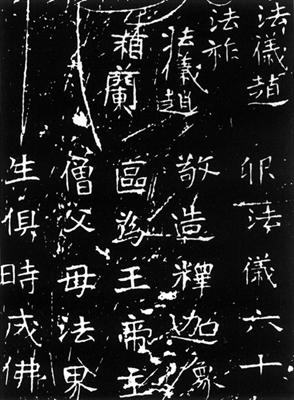 法儀趙
法祚
法儀趙
蘭
法儀六十
敬造釋迦像
區為王帝主
僧父母法界
生俱時成佛